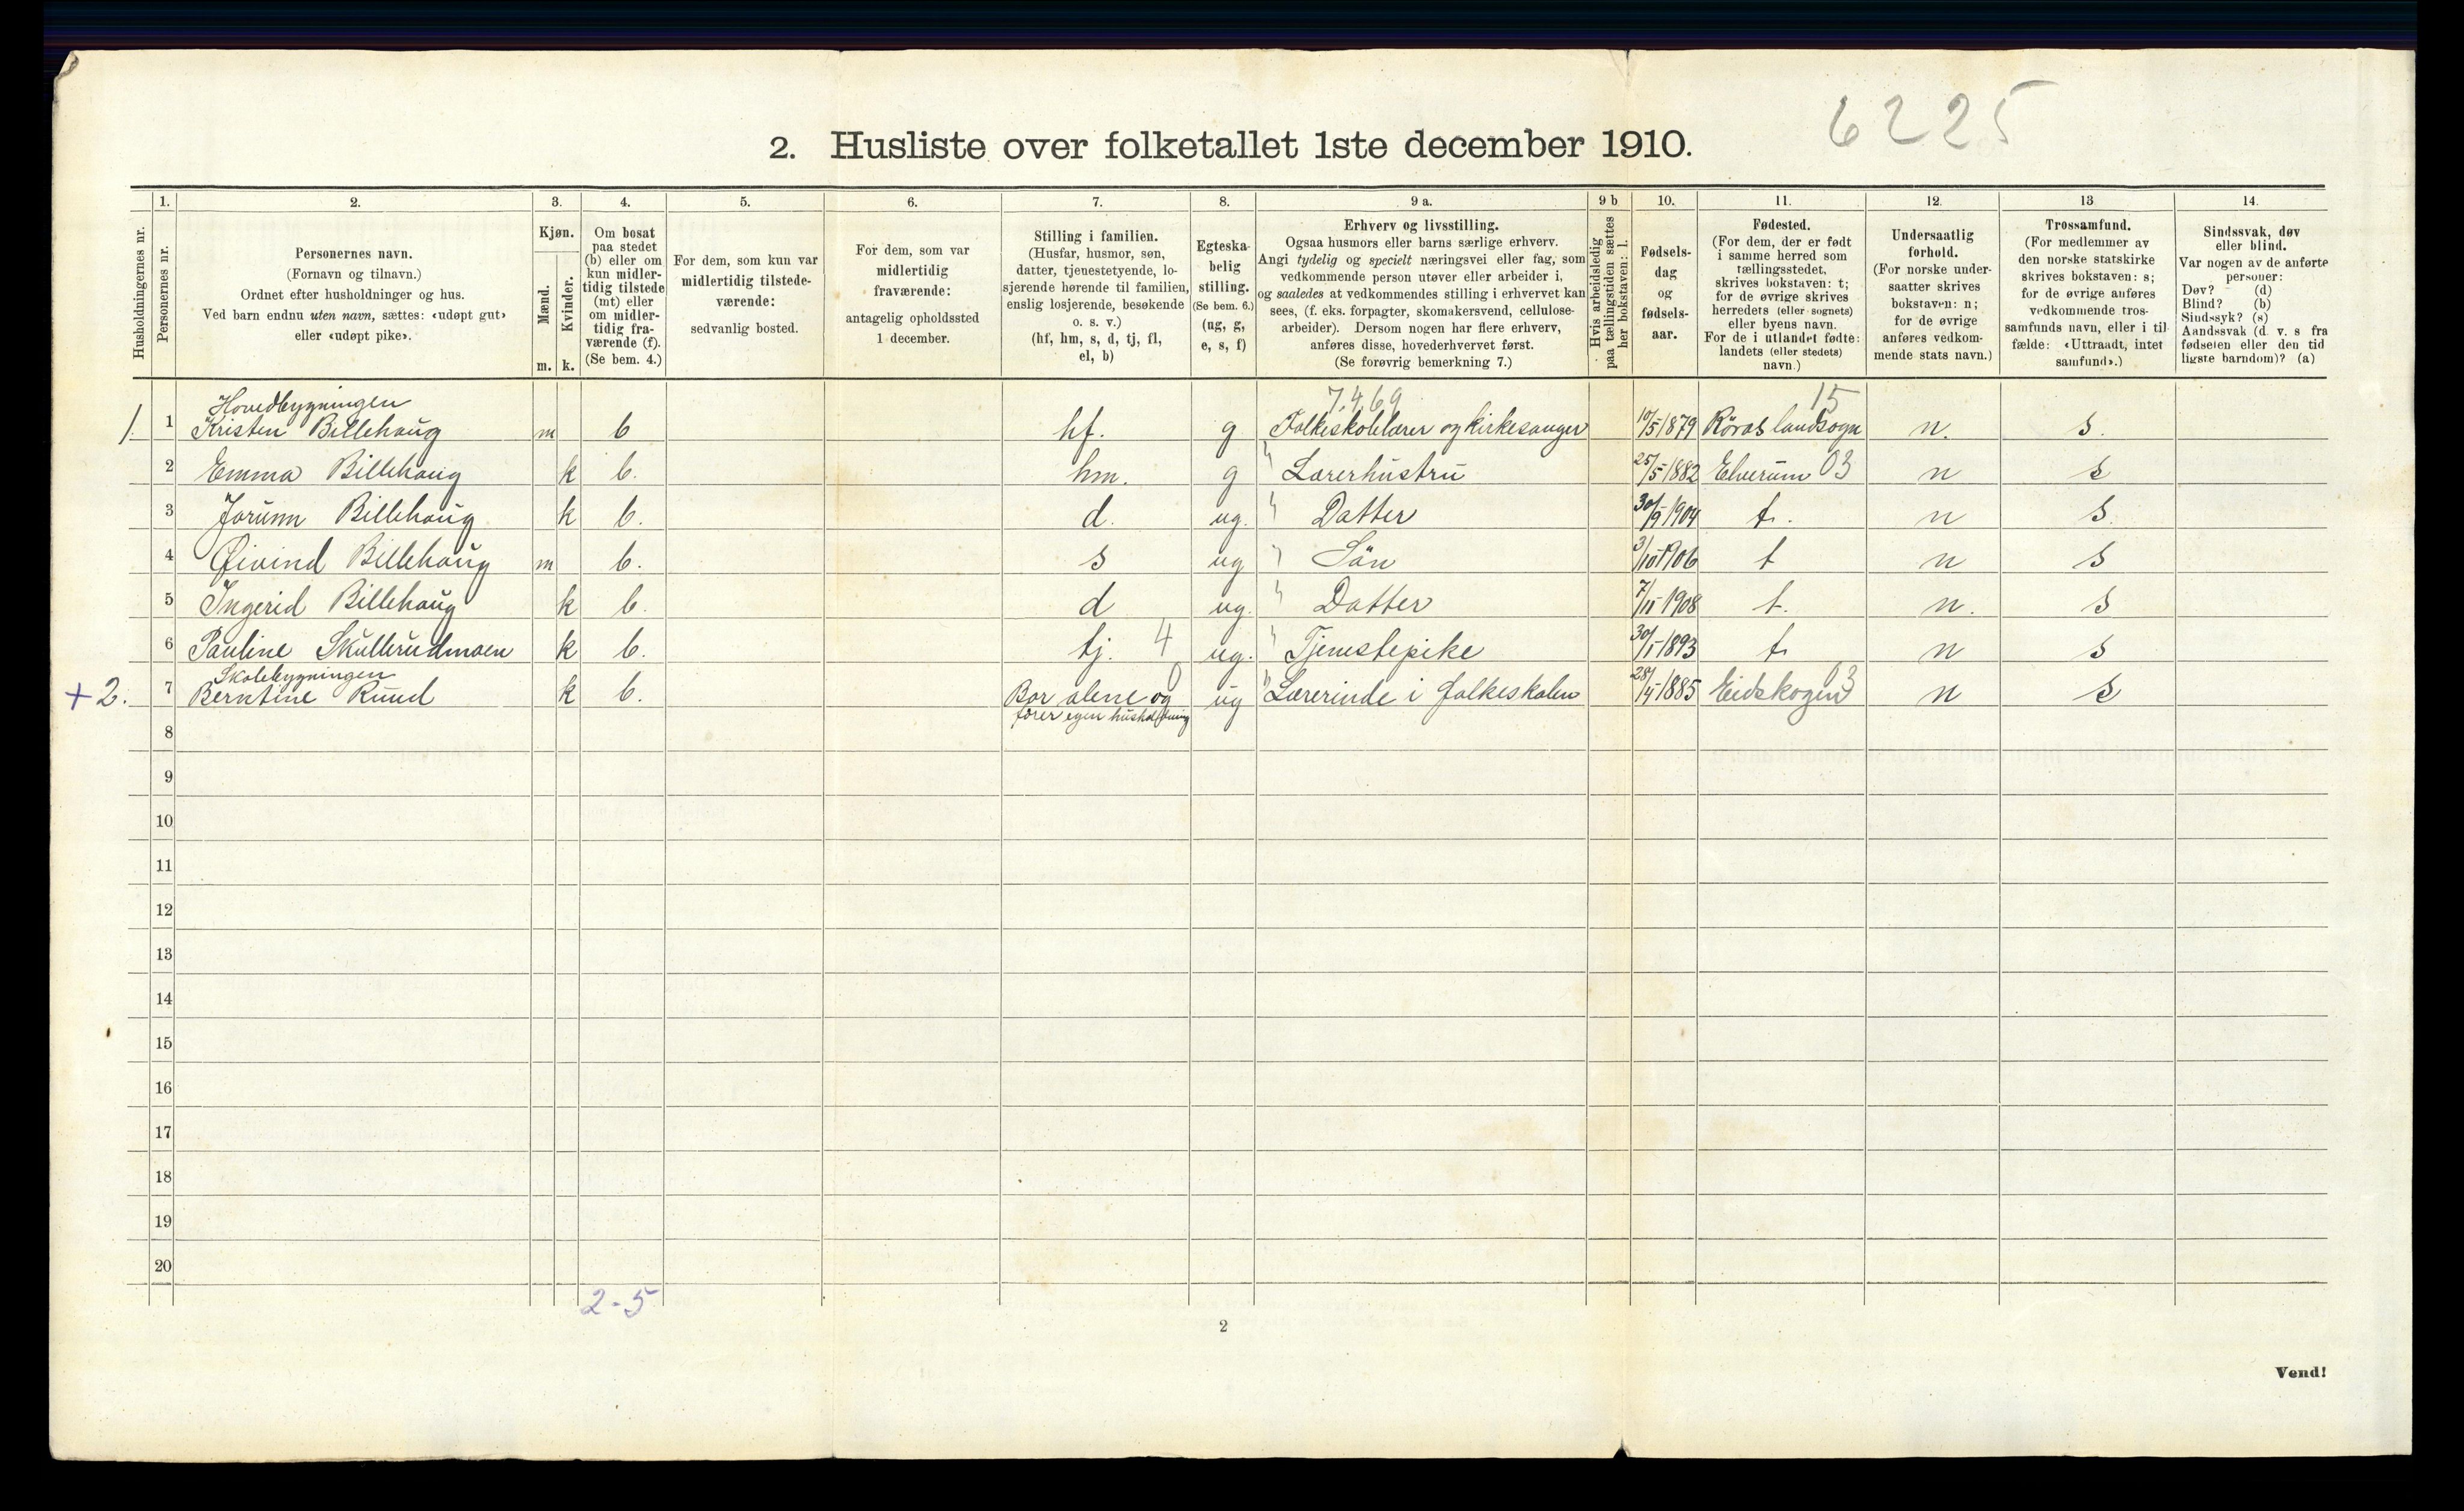 6225
2. Husliste over folketallet 1ste december 1910.
Husholdningernes nr.
1.
Personernes nr.
2.
Personernes navn.
(Fornavn og tilnavn.)
Ordnet efter husholdninger og hus.
Ved barn endnu uten navn, sættes: «udøpt gut»
eller «udøpt pike».
3.
Kjøn.
Mænd.
Kvinder.
m. k.
4.
Om bosat
paa stedet
(b) eller om
kun midler-
tidig tilstede
(mt) eller
om midler-
tidig fra-
værende (f).
(Se bem. 4.)
5.
For dem, som kun var
midlertidig tilstede-
værende:
sedvanlig bosted.
6.
For dem, som var
midlertidig
fraværende:
antagelig opholdssted
1 december.
7.
Stilling i familien.
(Husfar, husmor, søn,
datter, tjenestetyende, lo-
sjerende hørende til familien,
enslig losjerende, besøkende
o. s. v.)
(hf, hm, s, d, tj, fl,
el, b)
8.
Egteska-
belig
stilling.
(Se bem. 6.)
(ug, g,
e, s, f)
9 a.
Erhverv og livsstilling.
Ogsaa husmors eller barns særlige erhverv.
Angi tydelig og specielt næringsvei eller fag, som
vedkommende person utøver eller arbeider i,
og saaledes at vedkommendes stilling i erhvervet kan
sees, (f. eks. forpagter, skomakersvend, cellulose-
arbeider). Dersom nogen har flere erhverv,
anføres disse, hovederhvervet først.
(Se forøvrig bemerkning 7.)
9 b
Hvis arbeidsledig
paa tællingstiden sættes
her bokstaven: l.
10.
Fødsels-
dag
og
fødsels-
aar.
11.
Fødested.
(For dem, der er født
i samme herred som
tællingsstedet,
skrives bokstaven: t;
for de øvrige skrives
herredets (eller sognets)
eller byens navn.
For de i utlandet fødte:
landets (eller stedets)
navn.)
12.
Undersaatlig
forhold.
(For norske under-
saatter skrives
bokstaven: n;
for de øvrige
anføres vedkom-
mende stats navn.)
13
Trossamfund.
(For medlemmer av
den norske statskirke
skrives bokstaven: s;
for de øvrige anføres
vedkommende tros-
samfunds navn, eller i til
fælde: «Uttraadt, intet
samfund».)
14.
Sindssvak, døv
eller blind.
Var nogen av de anførte
personer:
Døv? (d)
Blind? (b)
Sindssyk? (s)
Aandssvak (d. v. s fra
fødselen eller den tid
ligste barndom)? (a)
Hovedbygningen 7.4.69 15
1. 1 Kristen Billehaug m b hf. g Folkeskolelærer og kirkesanger 10/5 1879 Röros landsogn n. s.
2 Emma Billehaug k b. hm. g " Lærerhustru 25/5 1882 Elverum 03 n s
3 Jorunn Billehaug k b. d. ug. " Datter 30/9 1904 t. n s.
4 Øivind Billehaug m b. s ug " Sön 3/10 1906 t n s
5 Ingerid Billehaug k b. d ug. " Datter 7/11 1908 t. n. s
6 Pauline Skullerudmoen k b. tj. 4 ug. " Tjenestepike 30/1 1893 t. n s
Skolebygningen 0 03
+ 2. 7 Berntine Ruud k b. Bor alene og ug " Lærerinde i folkeskolen 28/4 1885 Eidskogen n s
fører egen husholdning
8
9
10
11
12
13
14
15
16
17
18
19
20
2-5
2
Vend!